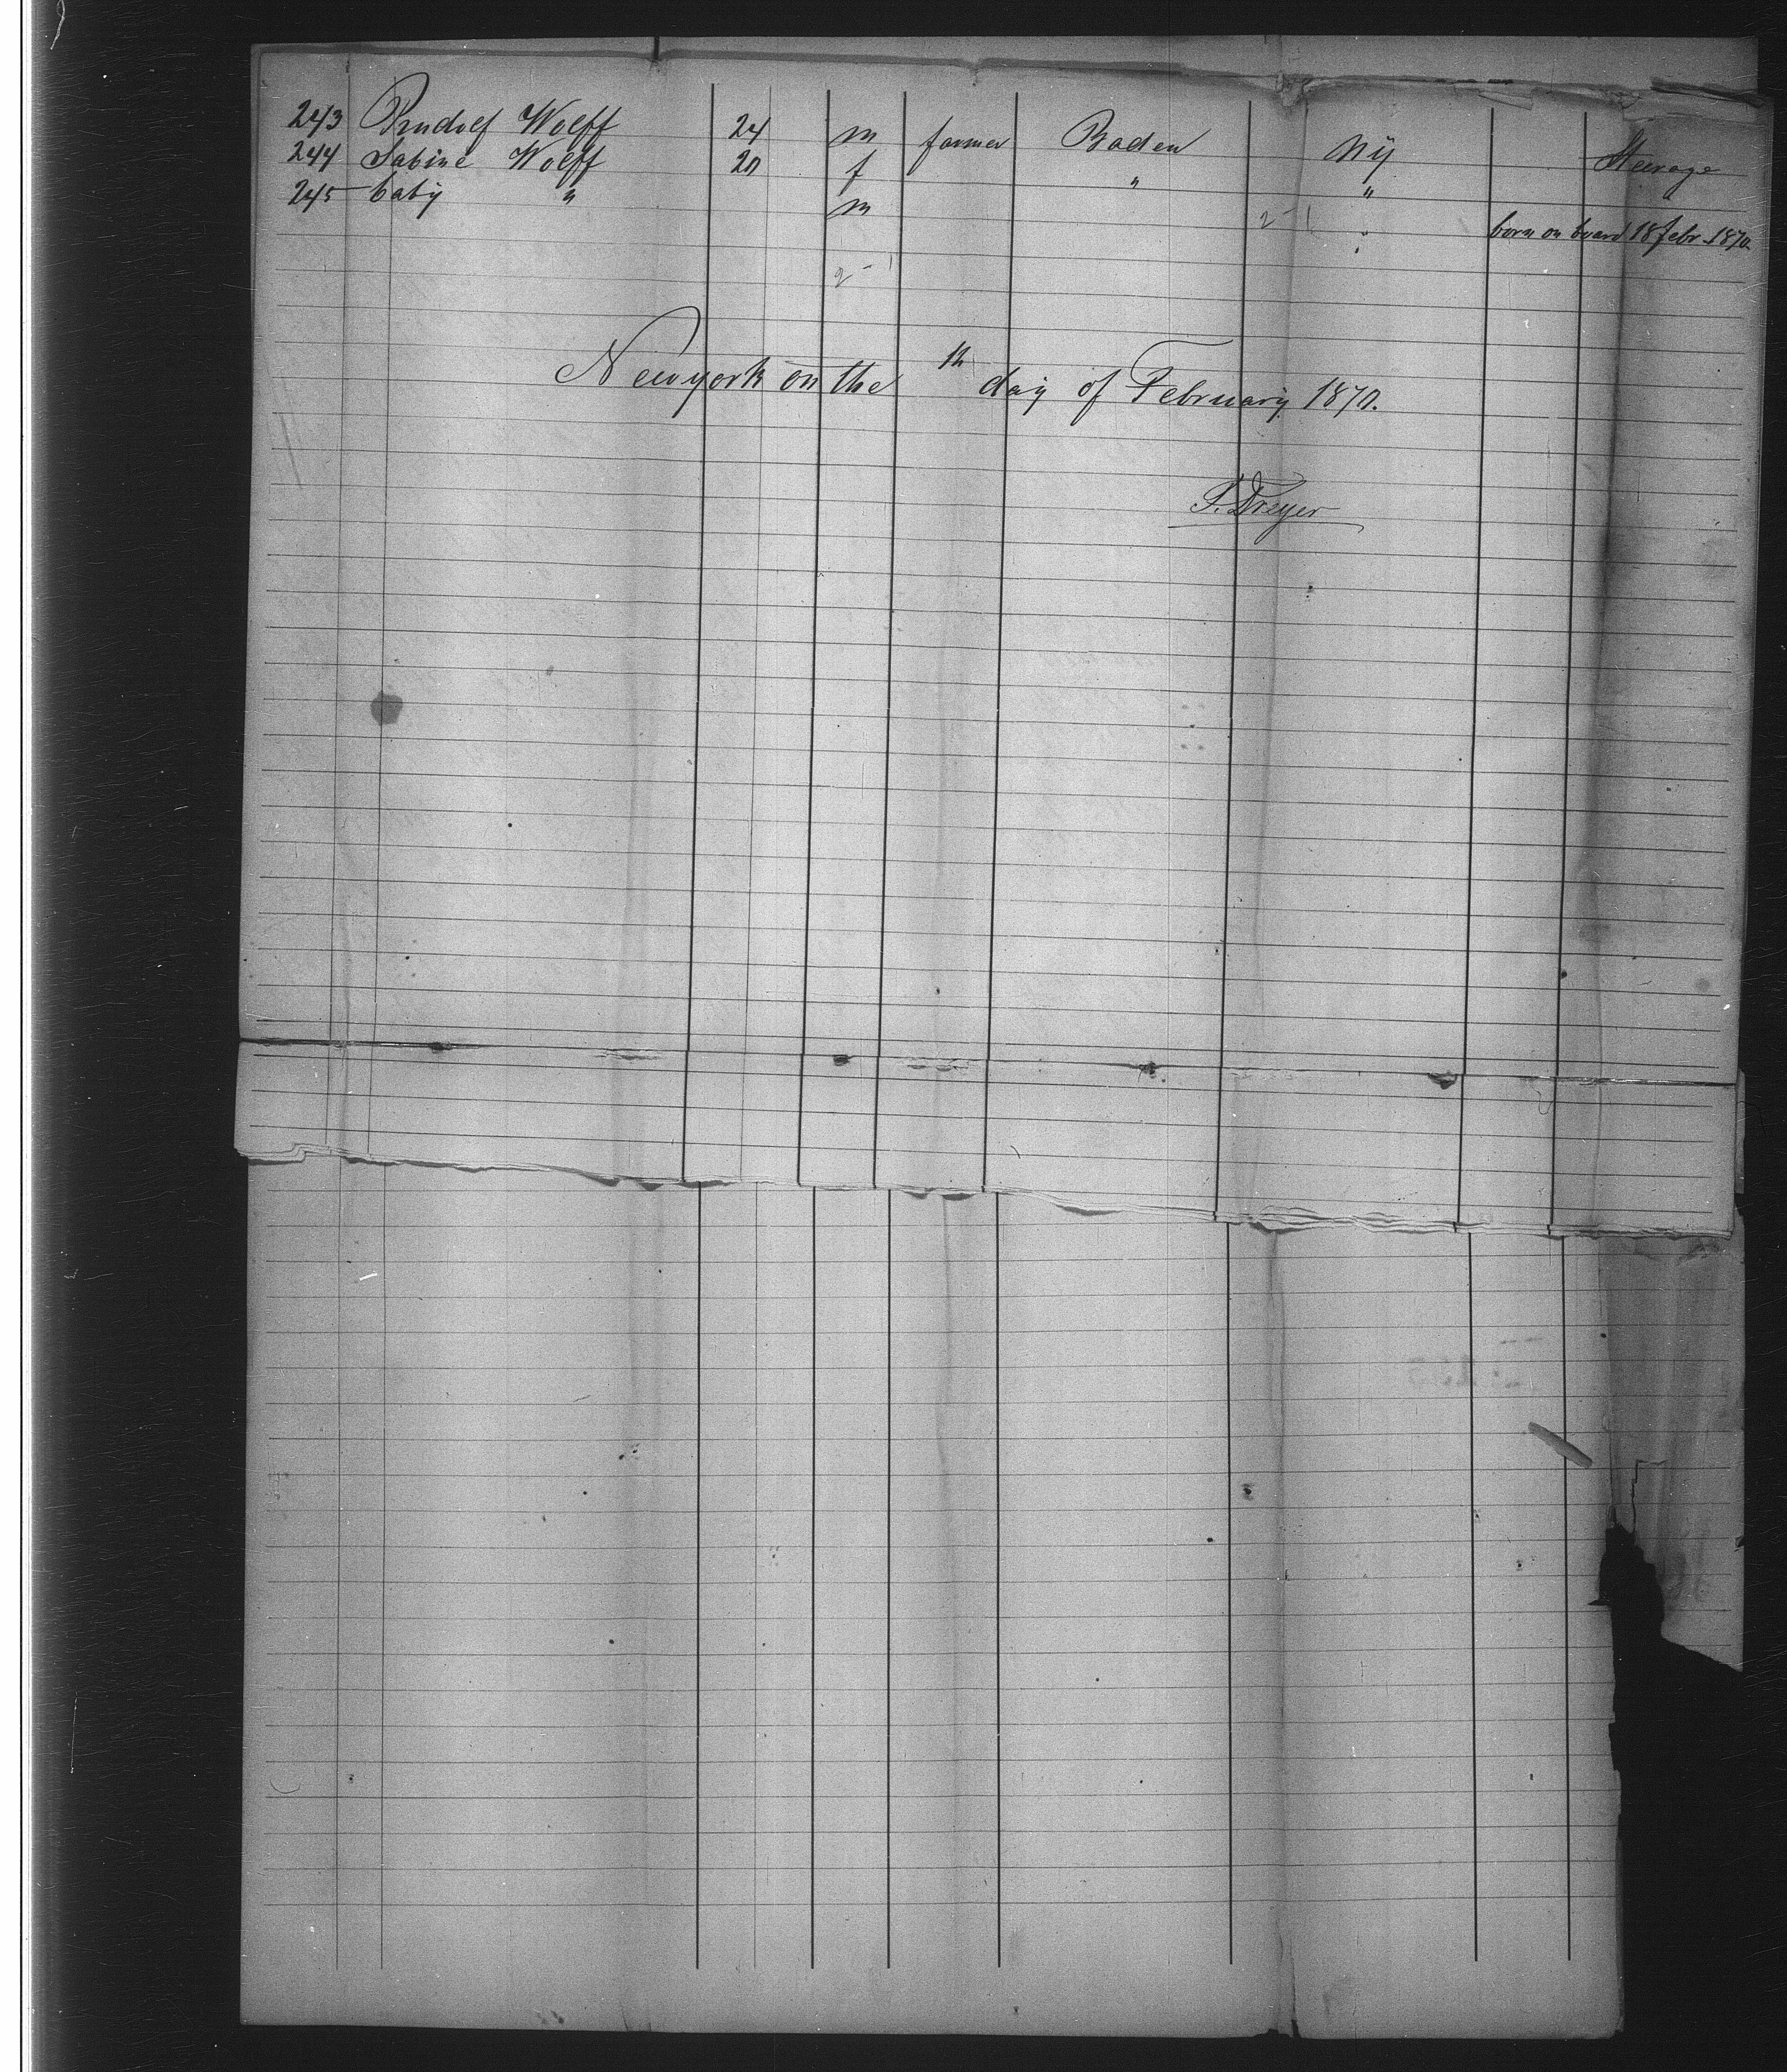 243 Rudolf Wolff 24 m farmer Baden NY Steerage
244 Sabine Wolff 20 f " "
245 baby " m " born on board 18 febr. 1870.
2-1
2-1
Newyork on the th day of February 1870.
Dreyer